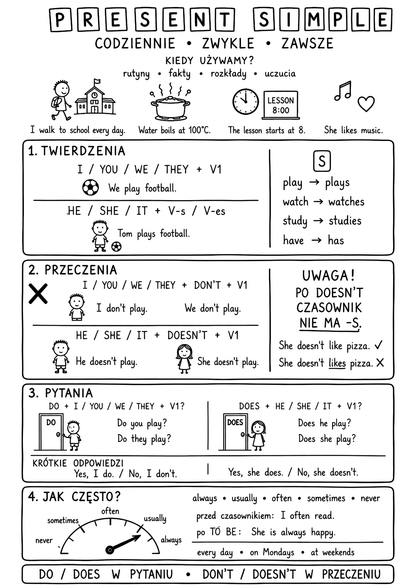 PRESENT SIMPLE
CODZIENNIE • ZWYKLE • ZAWSZE
KIEDY UŻYWAMY?
rutyny • fakty • rozkłady • uczucia
LESSON
8:00
I walk to school every day.
Water boils at 100°C.
The lesson starts at 8.
She likes music.
1. TWIERDZENIA
I / YOU / WE / THEY + V1
We play football.
HE / SHE / IT + V-s / V-es
Tom plays football.
S
play → plays
watch → watches
study → studies
have → has
2. PRZECZENIA
I / YOU / WE / THEY + DON'T + V1
I don't play.
We don't play.
HE / SHE / IT + DOESN'T + V1
He doesn't play.
She doesn't play.
UWAGA!
PO DOESN'T
CZASOWNIK
NIE MA -S.
She doesn't like pizza. ✓
She doesn't likes pizza. X
3. PYTANIA
DO + I / YOU / WE / THEY + V1?
DO
Do you play?
Do they play?
DOES + HE / SHE / IT + V1?
DOES
Does he play?
Does she play?
KRÓTKIE ODPOWIEDZI
Yes, I do. / No, I don't.
Yes, she does. / No, she doesn't.
4. JAK CZĘSTO?
never
sometimes
often
usually
always
always • usually • often • sometimes • never
przed czasownikiem: I often read.
po TO BE: She is always happy.
every day • on Mondays • at weekends
DO / DOES W PYTANIU • DON'T / DOESN'T W PRZECZENIU